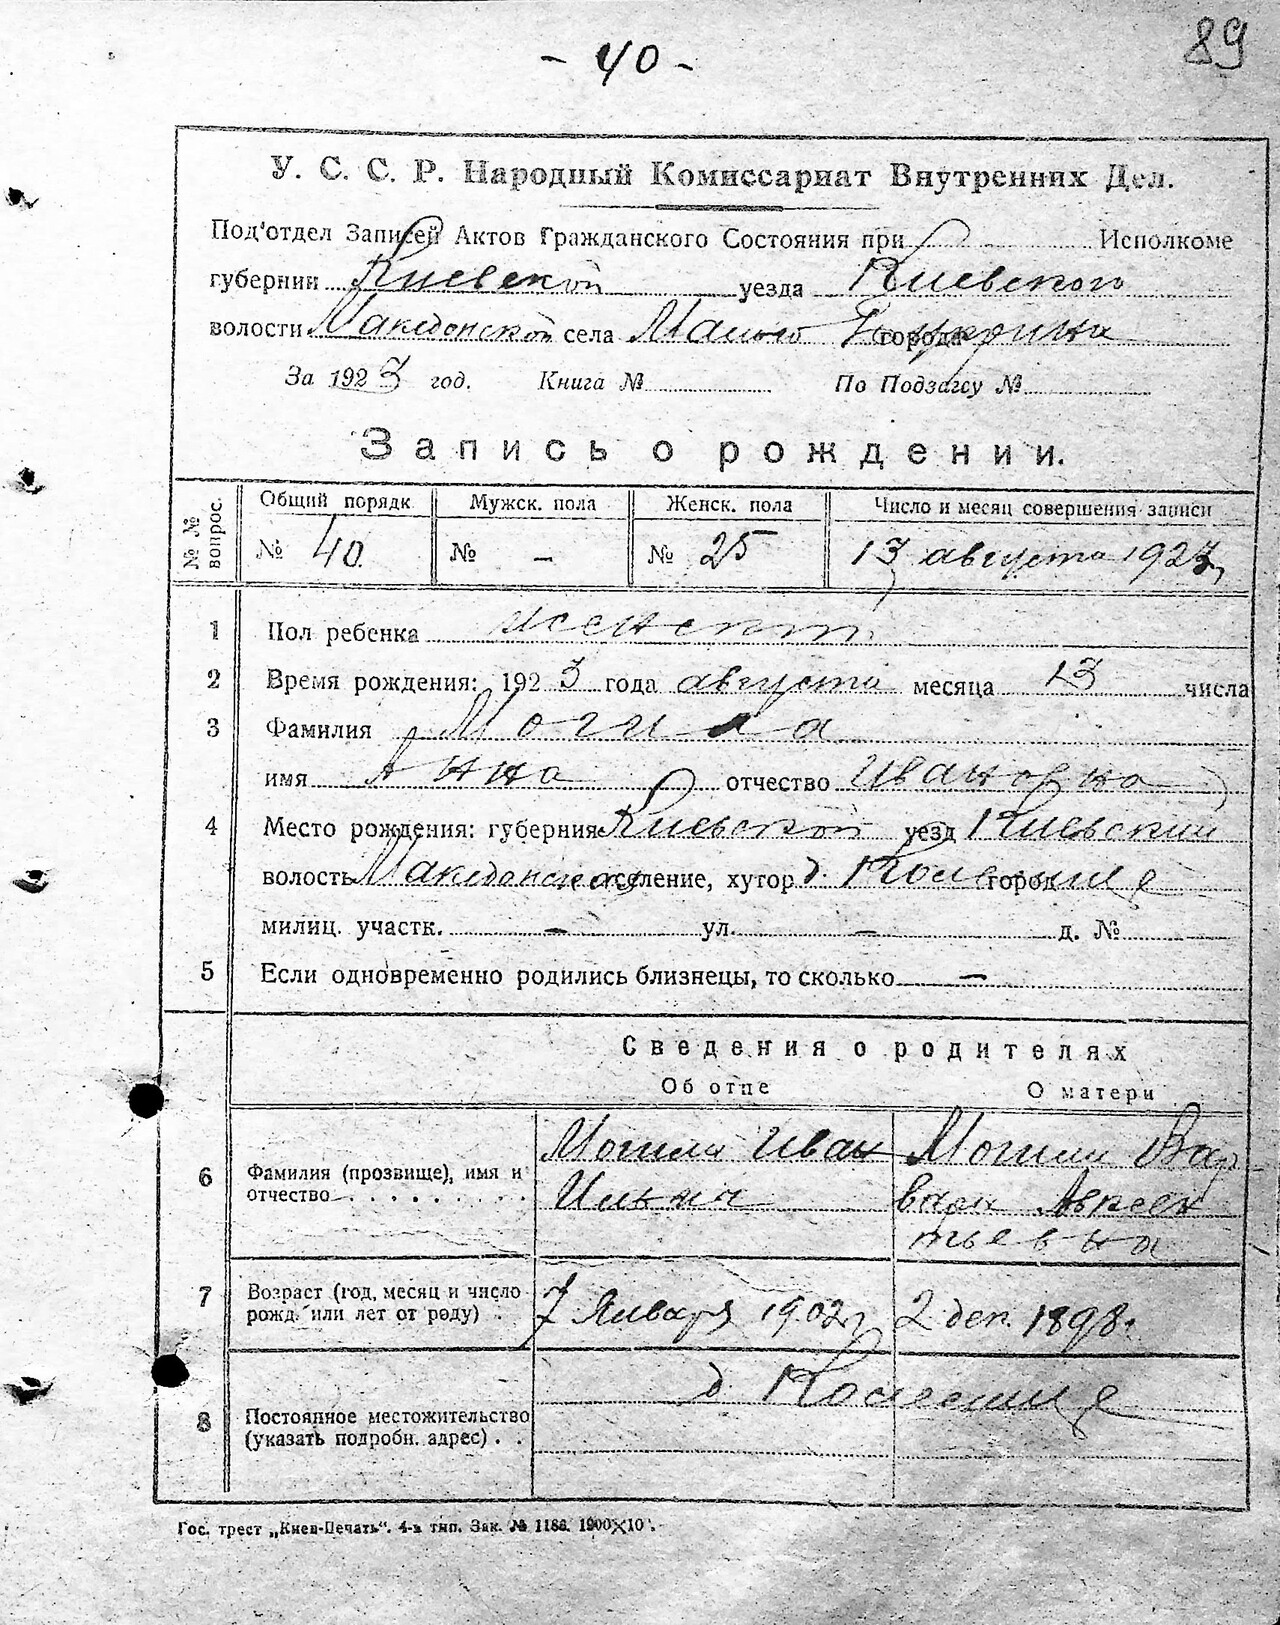 - 40 -
89
У. С. С. Р. Народный Комиссариат Внутренних Дел.
Под'отдел Записей Актов Гражданского Состояния при Исполкоме
губернии Киевской уезда Киевского
волости Македонской села Малого Букрина города
За 1923 год. Книга № По Подзагсу №
Запись о рождении.
№ № вопрос. Общий порядк Мужск. пола Женск. пола Число и месяц совершения записи
№ 40 № - № 25 13 августа 1923
1 Пол ребенка женский
2 Время рождения: 1923 года августа месяца 13 числа
3 Фамилия Могила
имя Анна отчество Ивановна
4 Место рождения: губерния Киевской уезд Киевский
волость Македонская селение, хутор д. город
милиц. участк. - ул. - д. № -
5 Если одновременно родились близнецы, то сколько -
Сведения о родителях
Об отце О матери
6 Фамилия (прозвище), имя и отчество
Могила Иван
Ильич
Могила Вар
вара Авксен
тьевна
7 Возраст (год, месяц и число рожд. или лет от роду) .
7 Января 1902 г 2 дек. 1898 г.
8 Постоянное местожительство
(указать подробн. адрес) . .
д.
Гос. трест „Киев-Печать“. 4-я тип. Зак. № 1186. 1900×10 .